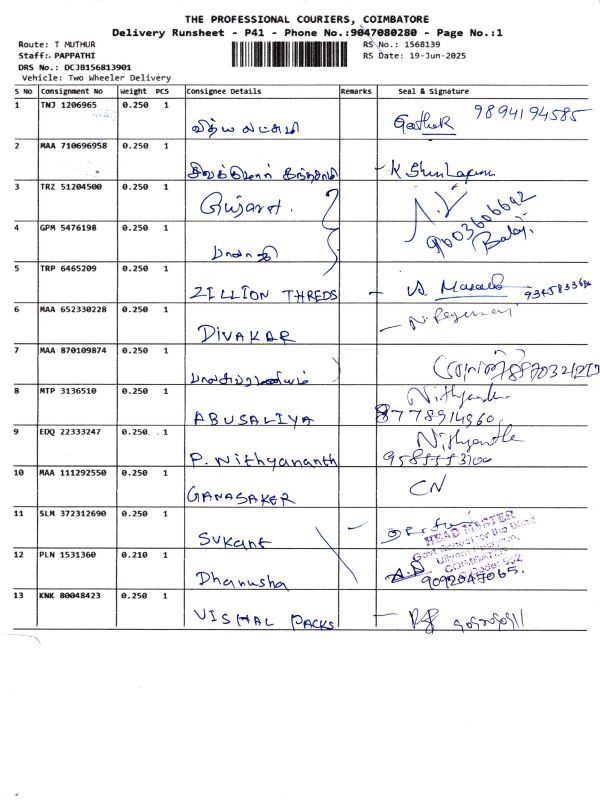 THE PROFESSIONAL COURIERS, COIMBATORE
Delivery Runsheet - P41 - Phone No.:9047080280 - Page No.:1
Route: T MUTHUR RS No.: 1568139
Staff: PAPPATHI RS Date: 19-Jun-2025
DRS No.: DCJB156813901
Vehicle: Two Wheeler Delivery
S No Consignment No Weight PCS Consignee Details Remarks Seal & Signature
1 TNJ 1206965 0.250 1
வித்யா லட்சுமி 9894194585
2 MAA 710696958 0.250 1
3 TRZ 51204500 0.250 1
குஜராத்
4 GPM 5476198 0.250 1
9003606642
Balaji
5 TRP 6465209 0.250 1
ZILLION THREDS
6 MAA 652330228 0.250 1
DIVAKAR
7 MAA 870109874 0.250 1
பாலசுப்ரமணியம்
8 MTP 3136510 0.250 1
ABUSALIYA 8778914960
9 EDQ 22333247 0.250 1
P. Nithyananth
10 MAA 111292550 0.250 1
GANASAKER CN
11 SLM 372312690 0.250 1
Sukant
HEAD MASTER
12 PLN 1531360 0.210 1
Dhanusha 9092047065.
13 KNK 80048423 0.250 1
VISHAL PACKS